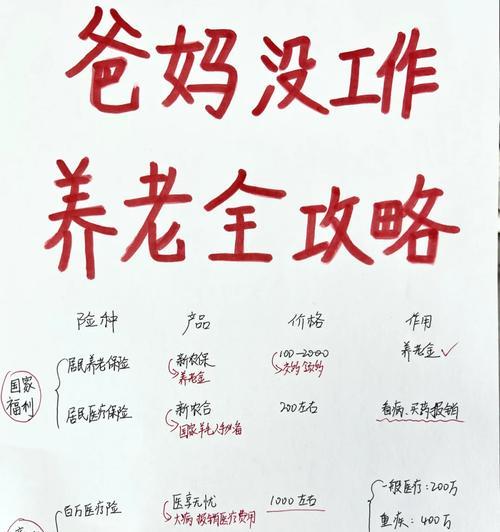 爸妈没工作
养老全攻略
险种 产品 价格 作用
国家福利
居民养老保险 新农保 100-2000 养老金✓
养老金
居民医疗保险 新农合 200左右 看病、买药报销
百万医疗险 医享无忧 1000左右 一般医疗:200万
大病报销医疗费用
重疾:400万